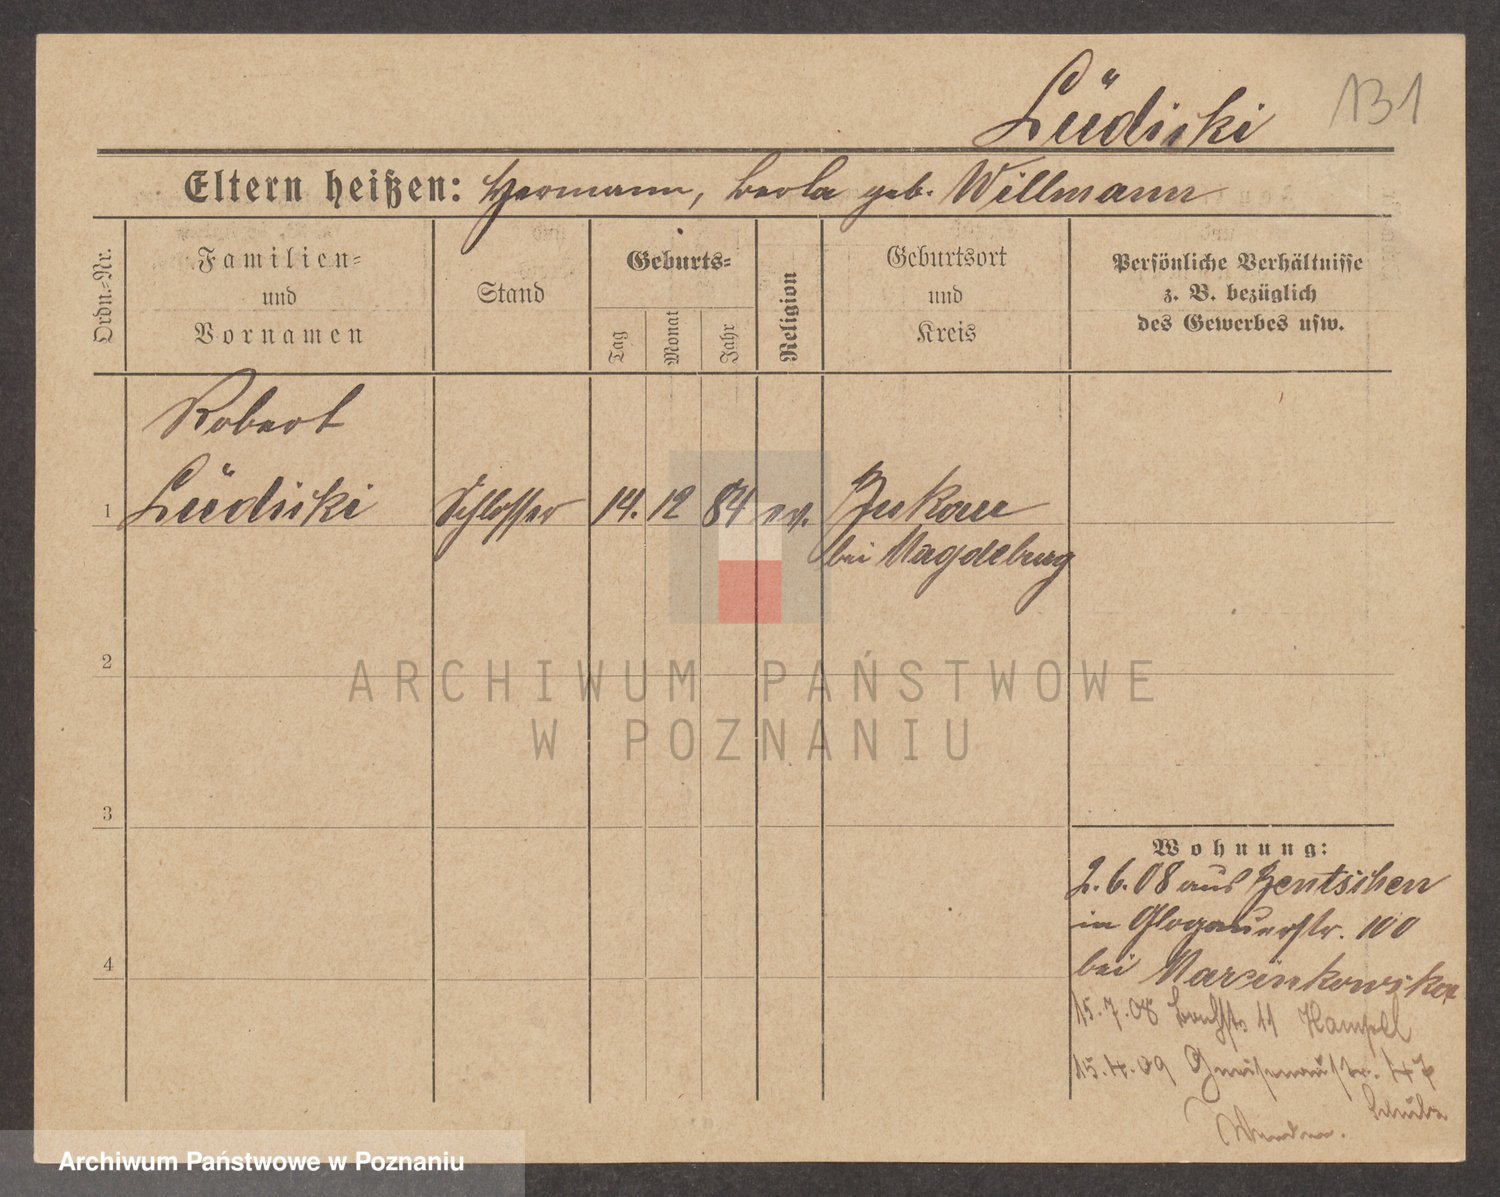 Lüdicki 131
Eltern heißen: Hermann, Berta geb. Willmann
Ordn.-Nr.
Familien-
und
Vornamen
Stand
Geburts-
Tag
Monat
Jahr
Religion
Geburtsort
und
Kreis
Persönliche Verhältnisse
z. B. bezüglich
des Gewerbes usw.
Robert
1 Lüdicki Schlosser 14. 12 84 ev. Buckau
bei Magdeburg
2
ARCHIWUM PAŃSTWOWE
W POZNANIU
3
Wohnung:
2.6.08 aus Bentschen
in Glogauerstr. 100
bei Marcinkowska
4
15.7.08 11 Hampel
15.4.09 Gneisenaustr.
Archiwum Państwowe w Poznaniu